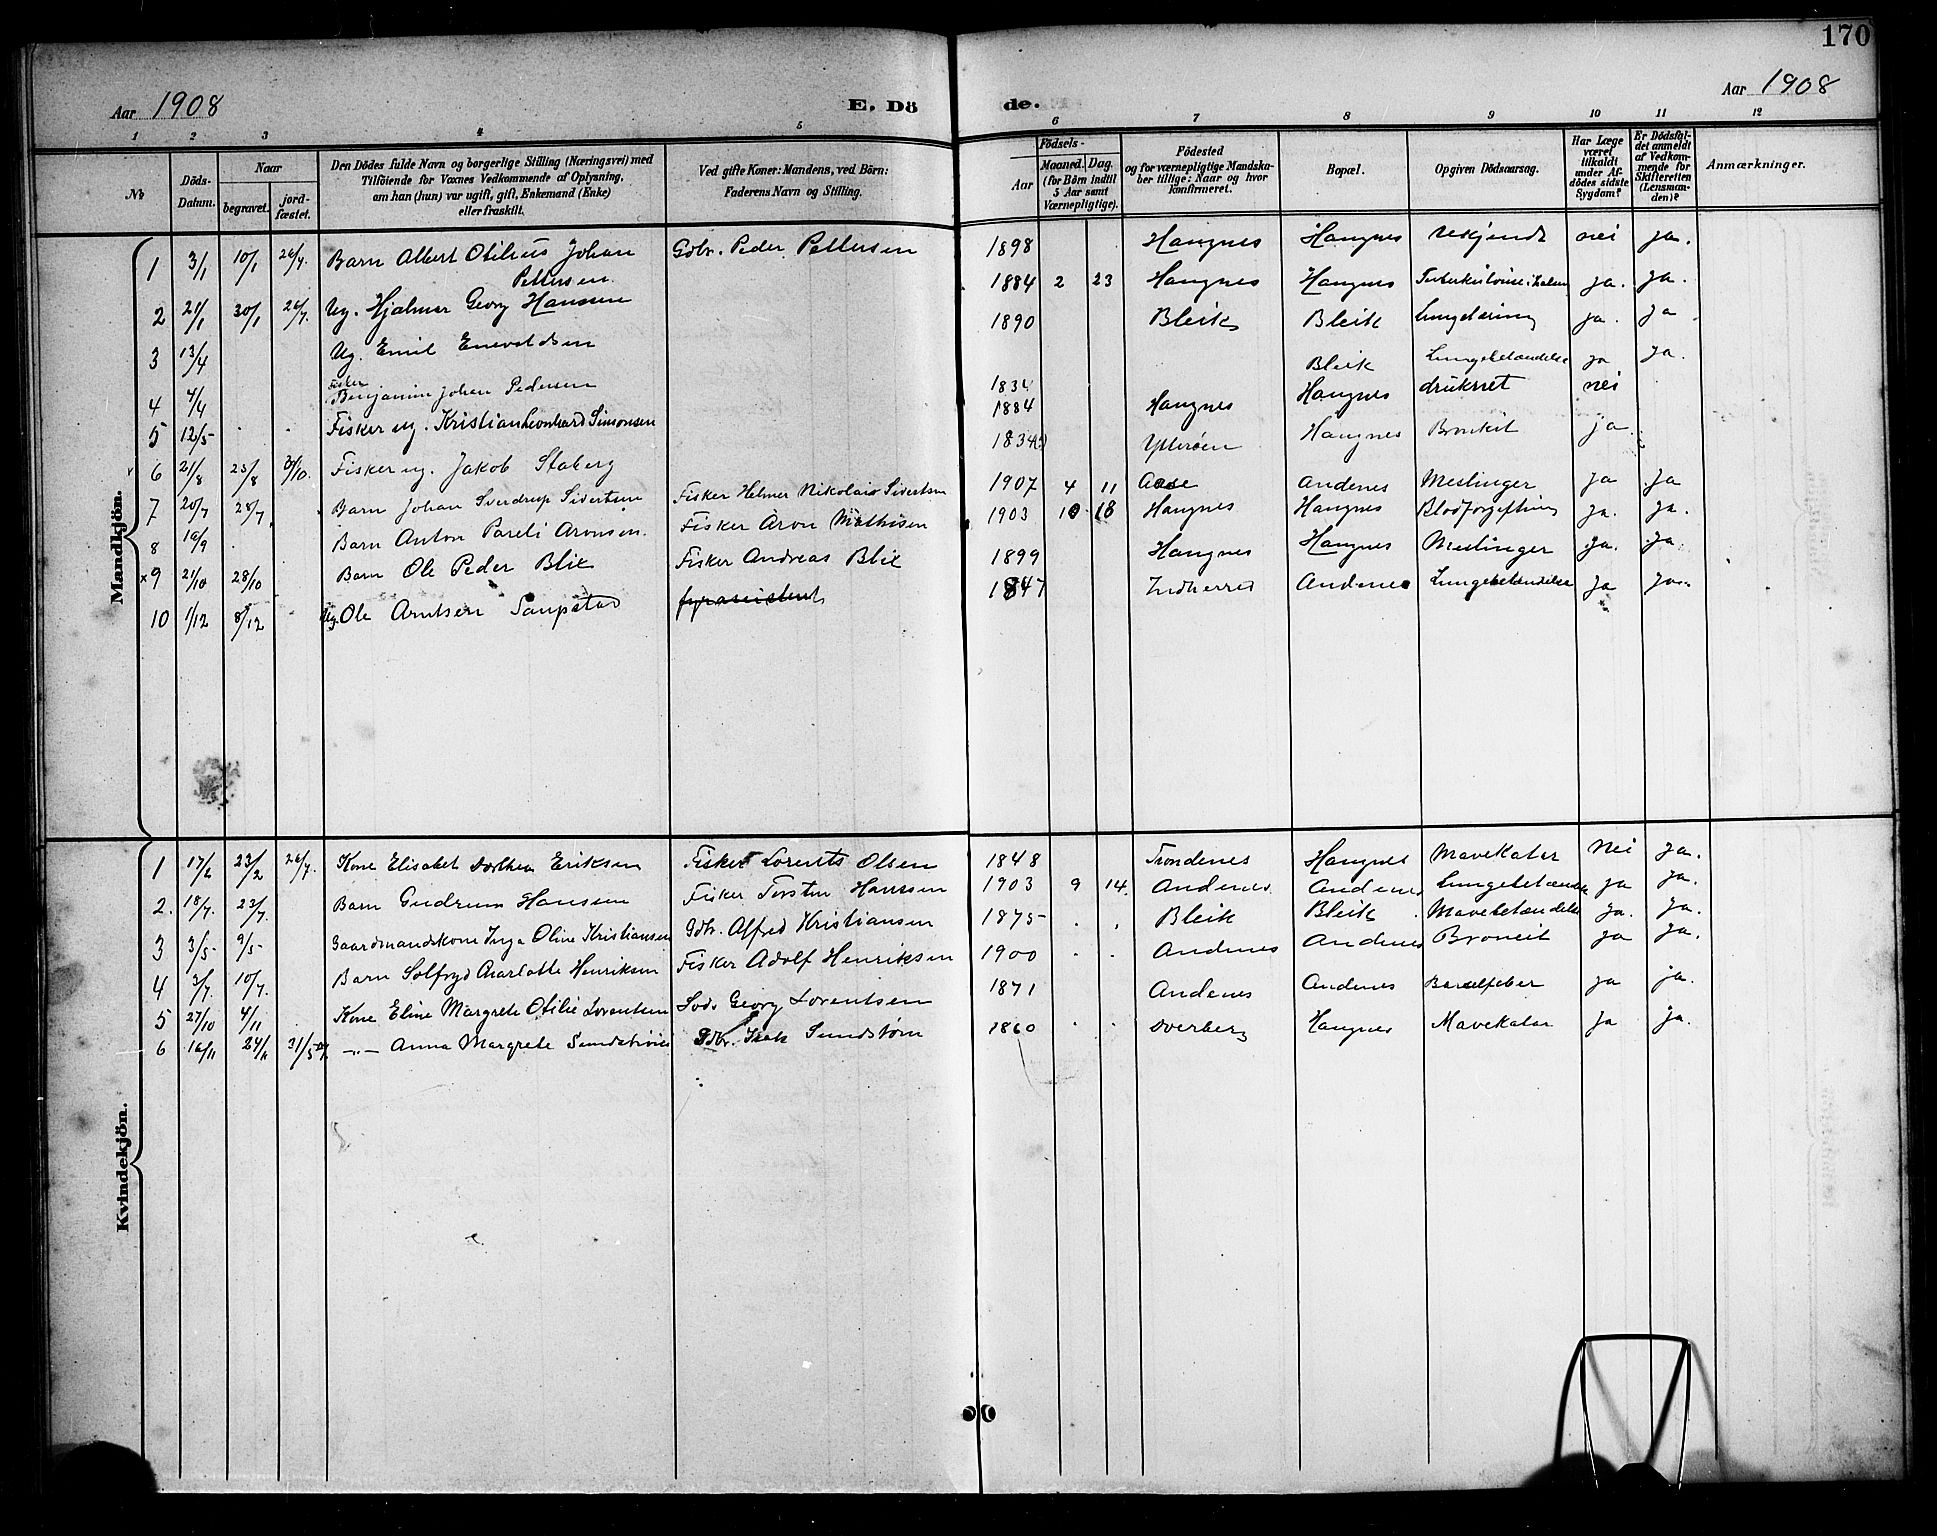 170
Aar 1908
E. Dö
de.
Aar 1908
1 2 3 4 5 6 7 8 9 10 11 12
No
Döds-Datum.
Naar
begravet.
jord-fæstet.
Den Dödes fulde Navn og borgerlige Stilling (Næringsvei) med
Tilföiende for Voxnes Vedkommende af Oplysning,
om han (hun) var ugift, gift, Enkemand (Enke)
eller fraskilt.
Ved gifte Koner: Mandens, ved Börn:
Faderens Navn og Stilling.
Födsels-
Aar
Maaned. Dag.
(for Börn indtil
5 Aar samt
Værnepligtige).
Födested
og for værnepligtige Mandska-
ber tillige: Naar og hvor
konfirmeret.
Bopæl.
Opgiven Dödsaarsag.
Har Læge
været
tilkaldt
under Af-
dödes sidste
Sygdom?
Er Dödsfal-
det anmeldt
af Vedkom-
mende for
Skifteretten
(Lensman-
den)?
Anmærkninger.
Mandkjön.
1 3/1 10/1 26/7 Barn Albert Otilius Johan Pettersen Gdbr. Peder Pettersen 1898 Haugnes Haugnes Ukjendt nei ja.
2 21/1 30/1 26/7. Ug. Hjalmar Georg Hansen 1884 2 23 Haugnes Haugnes ja. ja.
3 13/4 Ug. Emil Enevoldsen 1890 Bleik Bleik Lungetæring ja. ja
4 4/4 Fisker Benjamin Johan Pedersen 1834 Bleik Lungebetændelse ja ja.
5 12/5 Fisker ug. Kristian Leonhard Simonsen 1884 Haugnes Haugnes druknet nei
6 21/8 23/8 31/10 Fisker ug. Jakob Staberg 1834 Ytterøen Haugnes Bronkit ja
7 20/7 28/7 Barn Johan Sverdrup Sivertsen Fisker Helmer Nikolais Sivertsen 1907 4 11 Aase Andenes Meslinger ja ja
8 10/9 Barn Anton Pareli Aronsen. Fisker Aron Mathisen 1903 10 18 Haugnes Haugnes Blodforgiftning ja. ja.
x 9 21/10 28/10 Barn Ole Peder Blix Fisker Andreas Blix 1899 Haugnes Haugnes Meslinger ja. ja
10 1/12 8/12 Ug. Ole Arntsen Saupstad fyrassistent 1847 Indherred Andenes Lungebetændelse ja ja.
Kvindekjön.
1 17/2 23/2 26/7. Kone Elisabet Dorthea Eriksen Fisker Lorents Olsen 1848 Trondenes Haugnes Mavekatar nei ja.
2. 18/7. 23/7. Barn Gudrun Hansen Fisker Torsten Hansen 1903 9 14. Andenes Andenes Lungebetændelse ja ja.
3 3/5 9/5 Gaardmandskone Inga Oline Kristiansen Gdbr. Alfred Kristiansen 1875 Bleik Bleik Mavebetændelse ja. ja.
4 3/7. 10/7. Barn Solfryd Charlotte Henriksen Fisker Adolf Henriksen 1900 Andenes Andenes Broncit ja ja.
5 27/10 4/11 Kone Eline Margrete Otilie Lorentsen Georg Lorentsen 1871 Andenes Andenes Barselfeber ja ja.
6 16/11 24/11 31/5 -"- Anna Margrete Sundstrøm Gdbr. Isak Sundstøm 1860 Dverberg Haugnes Mavekatar ja ja.